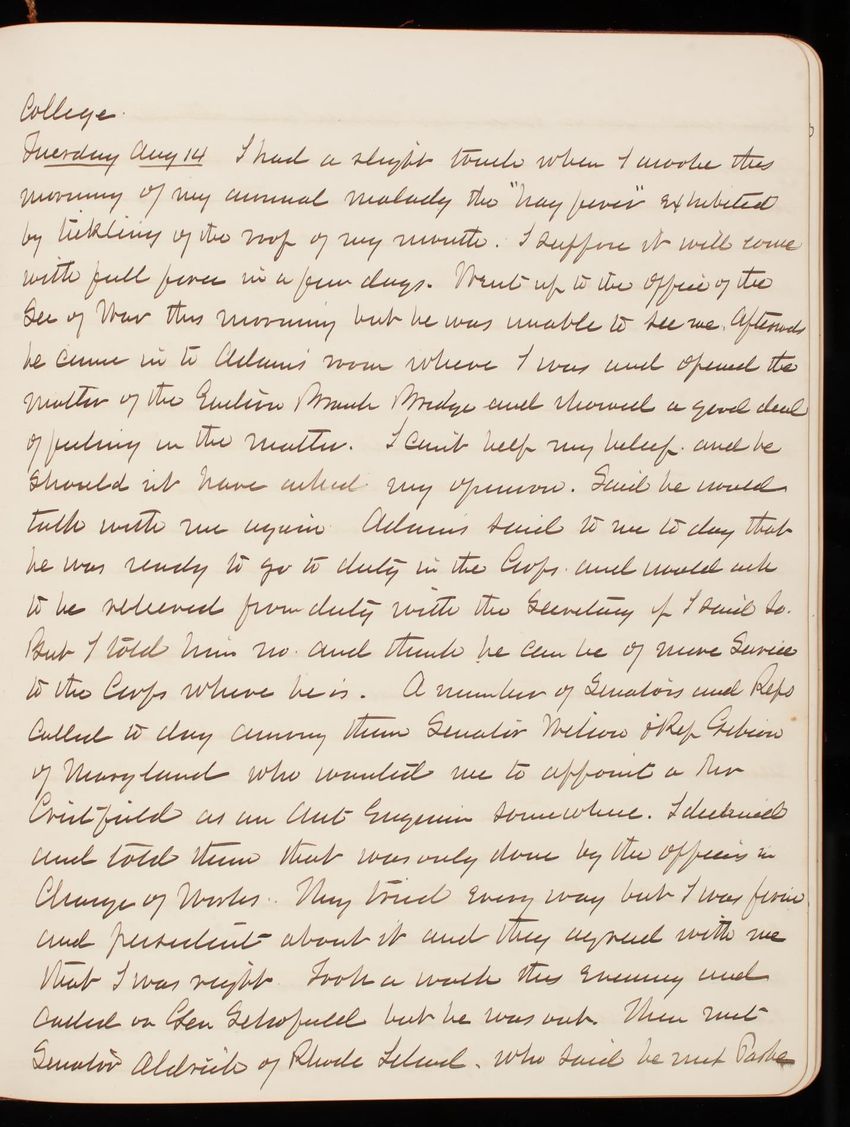 College.
Tuesday Aug 14 I had a slight touch when I awoke this
morning of my annual malady the "hay fever" exhibited
by tickling of the roof of my mouth. I suppose it will come
with full force in a few days. Went up to the office of the
Sec of War this morning but he was unable to see me. Afterwards
he came in to Adams room where I was and opened the
matter of the Eastern Branch Bridge and showed a good deal
of feeling in the matter. I can't help my belief. and he
should not have asked my opinion. Said he would
talk with me again Adams said to me to day that
he was ready to go to duty in the Corps. and would ask
to be relieved from duty with the Secretary if I said so.
But I told him no. and think he can be of more service
to the Corps where he is. A number of Senators and Reps
called to day among them Senator Wilson & Rep Gibson
of Maryland who wanted me to appoint a Mr
Cristfield as an Asst Engineer somewhere. I declined
and told them that was only done by the officers in
charge of works. They tried every way but I was firm
and persistent about it and they agreed with me
that I was right. Took a walk this evening and
called on Gen Schofield but he was out. Then met
Senator Aldrich of Rhode Island. who said he met